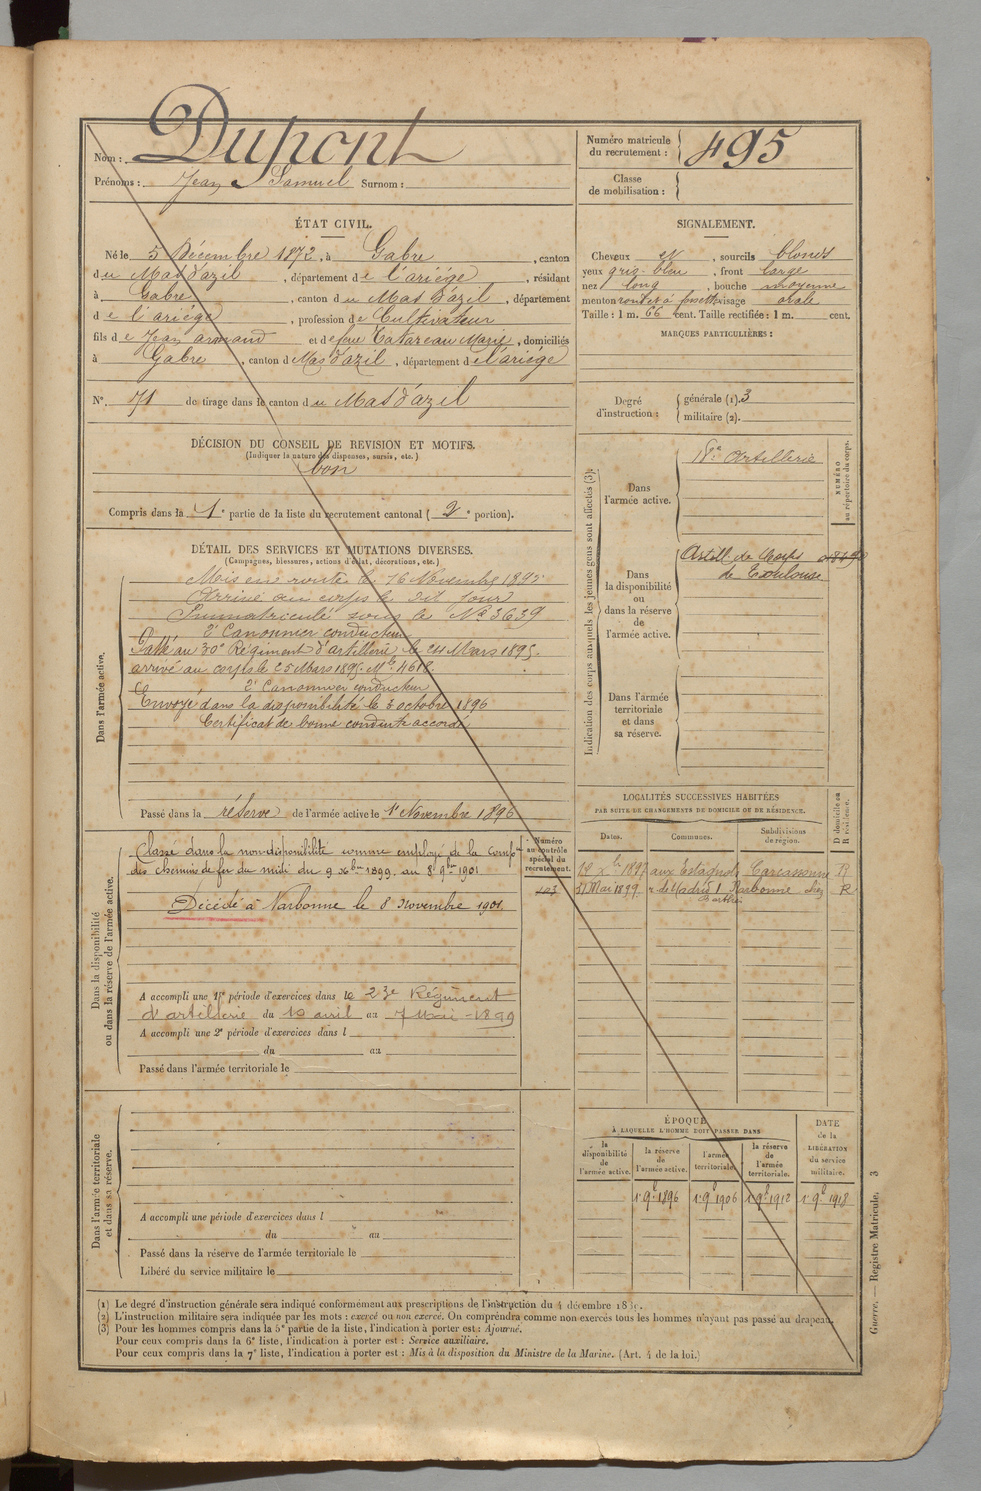 Nom : Dupont
Prénoms : Jean Samuel Surnom :
Numéro matricule
du recrutement : 495
Classe
de mobilisation :
ÉTAT CIVIL.
Né le 5 Décembre 1872, à Gabre, canton
du Mas d'azil, département de l'ariége, résidant
à Gabre, canton du Mas d'azil, département
de l'ariége, profession de Cultivateur
fils de Jean armand et de feue Marie, domiciliés
à Gabre, canton de Mas d'azil, département de l'ariége
N° 71 de tirage dans le canton du Mas d'azil
SIGNALEMENT.
Cheveux et, sourcils blonds
yeux gris-bleu, front large
nez long, bouche moyenne
menton rond et à fossette visage ovale
Taille : 1 m. 66 cent. Taille rectifiée : 1 m. cent.
MARQUES PARTICULIÈRES :
Degré
d'instruction :
générale (1). 3
militaire (2).
DÉCISION DU CONSEIL DE REVISION ET MOTIFS.
(Indiquer la nature des dispenses, sursis, etc.)
bon
Compris dans la 1e partie de la liste du recrutement cantonal ( 2e portion).
DÉTAIL DES SERVICES ET MUTATIONS DIVERSES.
(Campagnes, blessures, actions d'éclat, décorations, etc.)
Dans l'armée active.
Mis en route le 16 Novembre 1893
Arrivé au corps le dit jour
Immatriculé sous le No 3639
2e Canonnier conducteur
Passé au 30e Régiment d'artillerie le 24 Mars 1895.
arrivé au corps le 25 Mars 1895. Mle 4618.
2e Canonnier conducteur
Envoyé dans la disponibilité le 3 octobre 1896
Certificat de bonne conduite accordé
Passé dans la réserve de l'armée active le 1er Novembre 1896
Indication des corps auxquels les jeunes gens sont affectés (3).
NUMÉRO
au répertoire du corps.
Dans
l'armée active.
18e Artillerie
Dans
la disponibilité
ou
dans la réserve
de
l'armée active.
Artill. de Corps
de Toulouse
Dans l'armée
territoriale
et dans
sa réserve.
LOCALITÉS SUCCESSIVES HABITÉES
PAR SUITE DE CHANGEMENTS DE DOMICILE OU DE RÉSIDENCE.
D domicile ou
R résidence.
Dates. Communes. Subdivisions
de région.
18 Xbre 1897 aux Estagnols Carcassonne R
31 Mai 1899 Narbonne R
Dans la disponibilité
ou dans la réserve de l'armée active.
Numéro
au contrôle
spécial du
recrutement.
403
Classé dans la non-disponibilité comme employé de la Compie
des chemins de fer du midi du 9 Xbre 1899. au 8 9bre 1901
Décédé à Narbonne le 8 Novembre 1901.
A accompli une 1re période d'exercices dans le 23e Régiment
d'artillerie du 10 avril au 7 Mai - 1899
A accompli une 2e période d'exercices dans l
du au
Passé dans l'armée territoriale le
Dans l'armée territoriale
et dans sa réserve.
A accompli une période d'exercices dans l
du au
Passé dans la réserve de l'armée territoriale le
Libéré du service militaire le
ÉPOQUE
À LAQUELLE L'HOMME DOIT PASSER DANS
DATE
de la
LIBÉRATION
du service
militaire.
la
disponibilité
de
l'armée active.
la réserve
de
l'armée active.
l'armée
territoriale.
la réserve
de
l'armée
territoriale.
1er 9bre 1896 1er 9bre 1906 1er 9bre 1912 1er 9bre 1918
(1) Le degré d'instruction générale sera indiqué conformément aux prescriptions de l'instruction du 4 décembre
(2) L'instruction militaire sera indiquée par les mots : exercé ou non exercé. On comprendra comme non exercés tous les hommes n'ayant pas passé au drapeau.
(3) Pour les hommes compris dans la 5e partie de la liste, l'indication à porter est : Ajourné.
Pour ceux compris dans la 6e liste, l'indication à porter est : Service auxiliaire.
Pour ceux compris dans la 7e liste, l'indication à porter est : Mis à la disposition du Ministre de la Marine. (Art. 4 de la loi.)
Guerre. — Registre Matricule. 3